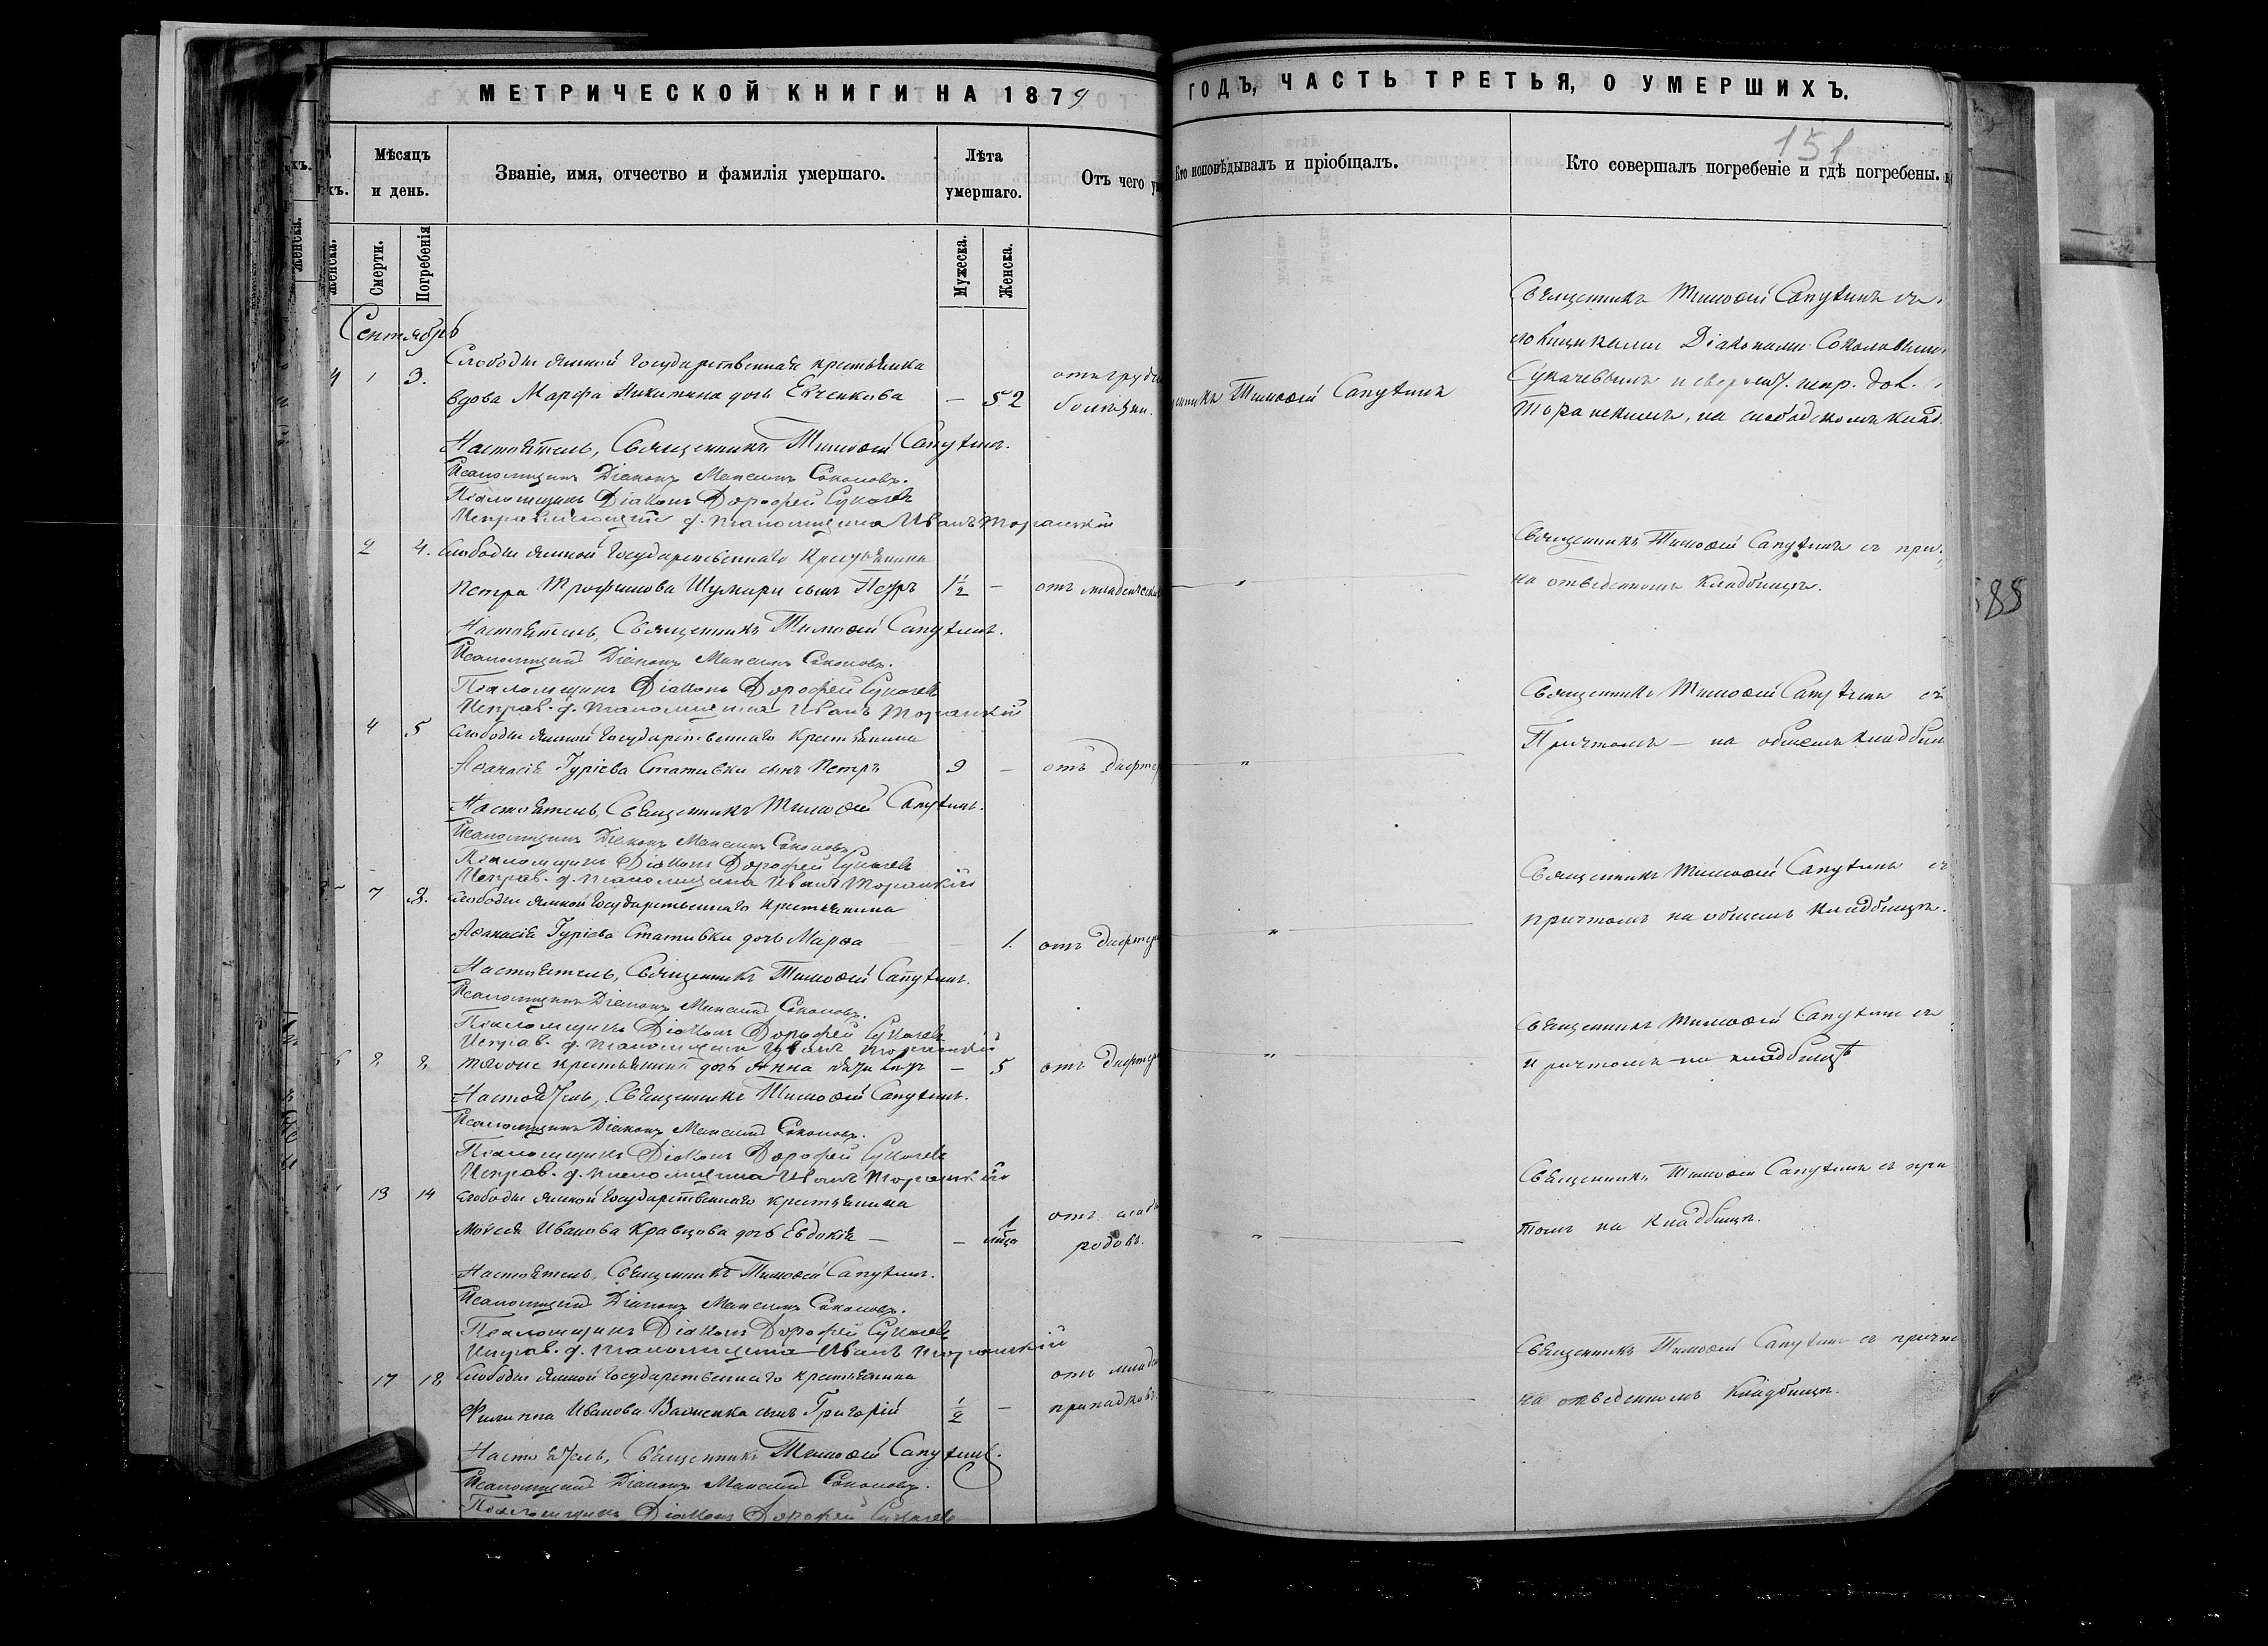 МЕТРИЧЕСКОЙ КНИГИ НА 1879
Мѣсяцъ и день.
Званіе, имя, отчество и фамилія умершаго.
Лѣта умершаго.
Отъ чего
Смерти.
Погребенія
Мужеска.
Женска.
Сентябрь
Слободы Ямной Государственная крестьянка
1 3. вдова Марфа Никитина дочь Евченкова — 52
отъ грудн
болѣзни.
Настоятель, Священникъ Тимоѳей Сапухинъ.
Псаломщикъ Діаконъ Максимъ Соколовъ.
Псаломщикъ Діаконъ Дорофей Сукачевъ
Исправляющій д. псаломщика Иванъ Торанскій
2 4. Слободы Ямной Государственнаго Крестьянина
Петра Трофимова Шумари сынъ Петръ 1½ — отъ младенческ
Настоятель, Священникъ Тимоѳей Сапухинъ.
Псаломщикъ Діаконъ Максимъ Соколовъ.
Псаломщикъ Діаконъ Дорофей Сукачевъ
Исправ. д. псаломщика Иванъ Торанскій
4 5 Слободы Ямной Государственнаго Крестьянина
Аѳанасія Гуріева Стативки сынъ Петръ 9 — отъ дифте
Настоятель, Священникъ Тимоѳей Сапухинъ.
Псаломщикъ Діаконъ Максимъ Соколовъ.
Псаломщикъ Діаконъ Дорофей Сукачевъ
Исправ. д. псаломщика Иванъ Торанскій
7 8. Слободы Ямной Государственнаго Крестьянина
Аѳанасія Гуріева Стативки дочь Марѳа — 1. отъ дифте
Настоятель, Священникъ Тимоѳей Сапухинъ.
Псаломщикъ Діаконъ Максимъ Соколовъ.
Псаломщикъ Діаконъ Дорофей Сукачевъ
Исправ. д. псаломщика Иванъ Торанскій
8 8 крестьянина дочь Анна — 5 отъ дифте
Настоятель, Священникъ Тимоѳей Сапухинъ.
Псаломщикъ Діаконъ Максимъ Соколовъ.
Псаломщикъ Діаконъ Дорофей Сукачевъ
Исправ. д. псаломщика Иванъ Торанскій
13 14 Слободы Ямной Государственнаго крестьянина
Моисея Иванова Кравцова дочь Евдокія — — 1 мѣца
отъ слаб
родовъ.
Настоятель, Священникъ Тимоѳей Сапухинъ.
Псаломщикъ Діаконъ Максимъ Соколовъ.
Псаломщикъ Діаконъ Дорофей Сукачевъ
Исправ. д. псаломщика Иванъ Торанскій
17 18 Слободы Ямной Государственнаго крестьянина
Филиппа Иванова сынъ Григорій ½ —
отъ млад
припадковъ
Настоятель, Священникъ Тимоѳей Сапухинъ.
Псаломщикъ Діаконъ Максимъ Соколовъ.
Псаломщикъ Діаконъ Дорофей Сукачевъ
ГОДЪ, ЧАСТЬ ТРЕТЬЯ, О УМЕРШИХЪ.
151
Кто исповѣдывалъ и пріобщалъ.
Кто совершалъ погребеніе и гдѣ погребены.
Тимоѳей Сапухинъ
Священникъ Тимоѳей Сапухинъ съ
Діаконами Соколовымъ
Сукачевымъ и
Торанскимъ, на слободскомъ клад
Священникъ Тимоѳей Сапухинъ съ при
на отведенномъ кладбищѣ.
Священникъ Тимоѳей Сапухинъ съ
Причтомъ — на общемъ кладбищ
Священникъ Тимоѳей Сапухинъ съ
причтомъ на общемъ кладбищѣ.
Священникъ Тимоѳей Сапухинъ съ
причтомъ на кладбищѣ
Священникъ Тимоѳей Сапухинъ съ при
томъ на кладбищѣ.
Священникъ Тимоѳей Сапухинъ съ причт
на отведенномъ кладбищѣ.